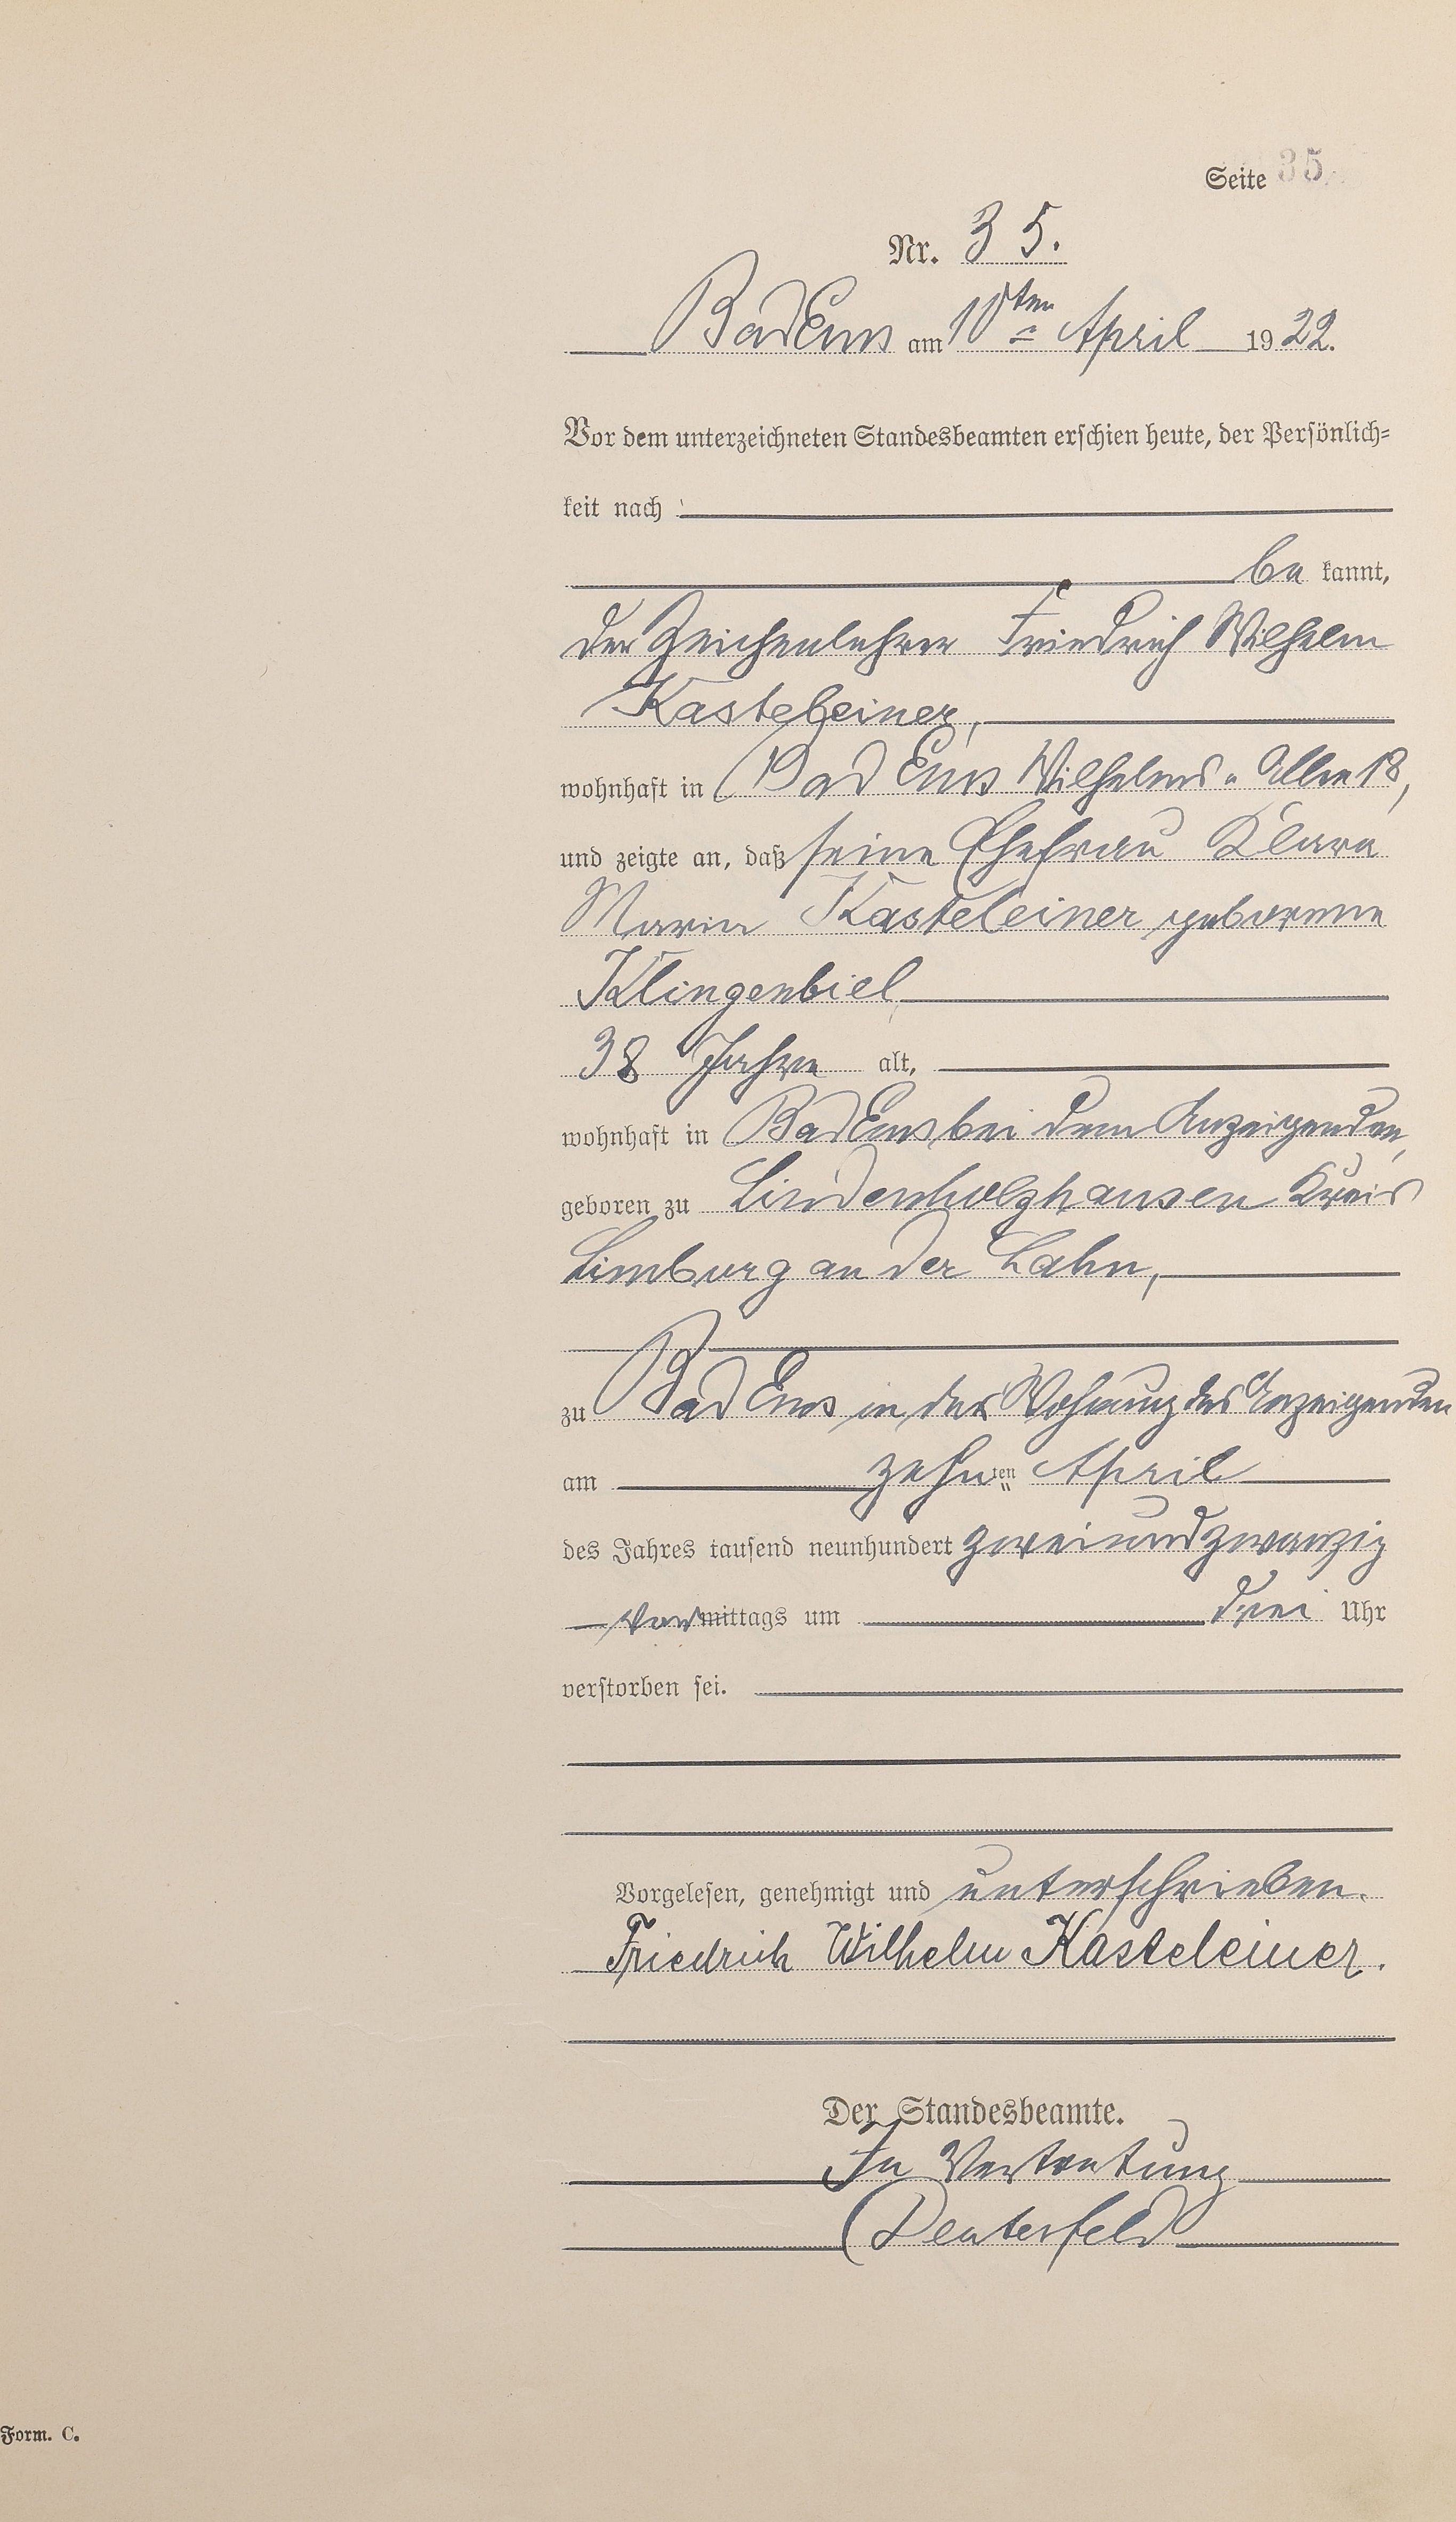 Seite 35.
Nr. 35.
Bad Ems am 10ten April 1922.
Vor dem unterzeichneten Standesbeamten erschien heute, der Persönlich-
keit nach
be kannt,
der Zeichenlehrer Friedrich Wilhelm
Kasteleiner,
wohnhaft in Bad Ems Wilhelms-Allee 18,
und zeigte an, daß seine Ehefrau Klara
Maria Kasteleiner geborene
Klingenbiel,
38 Jahre alt,
wohnhaft in Bad Ems bei dem Anzeigenden,
geboren zu Lindenholzhausen Kreis
Limburg an der Lahn,
zu Bad Ems in der Wohnung des Anzeigenden
am zehnten April
des Jahres tausend neunhundert zweiundzwanzig
vormittags um drei Uhr
verstorben sei.
Vorgelesen, genehmigt und unterschrieben.
Friedrich Wilhelm Kasteleiner.
Der Standesbeamte.
In Vertretung
Form. C.